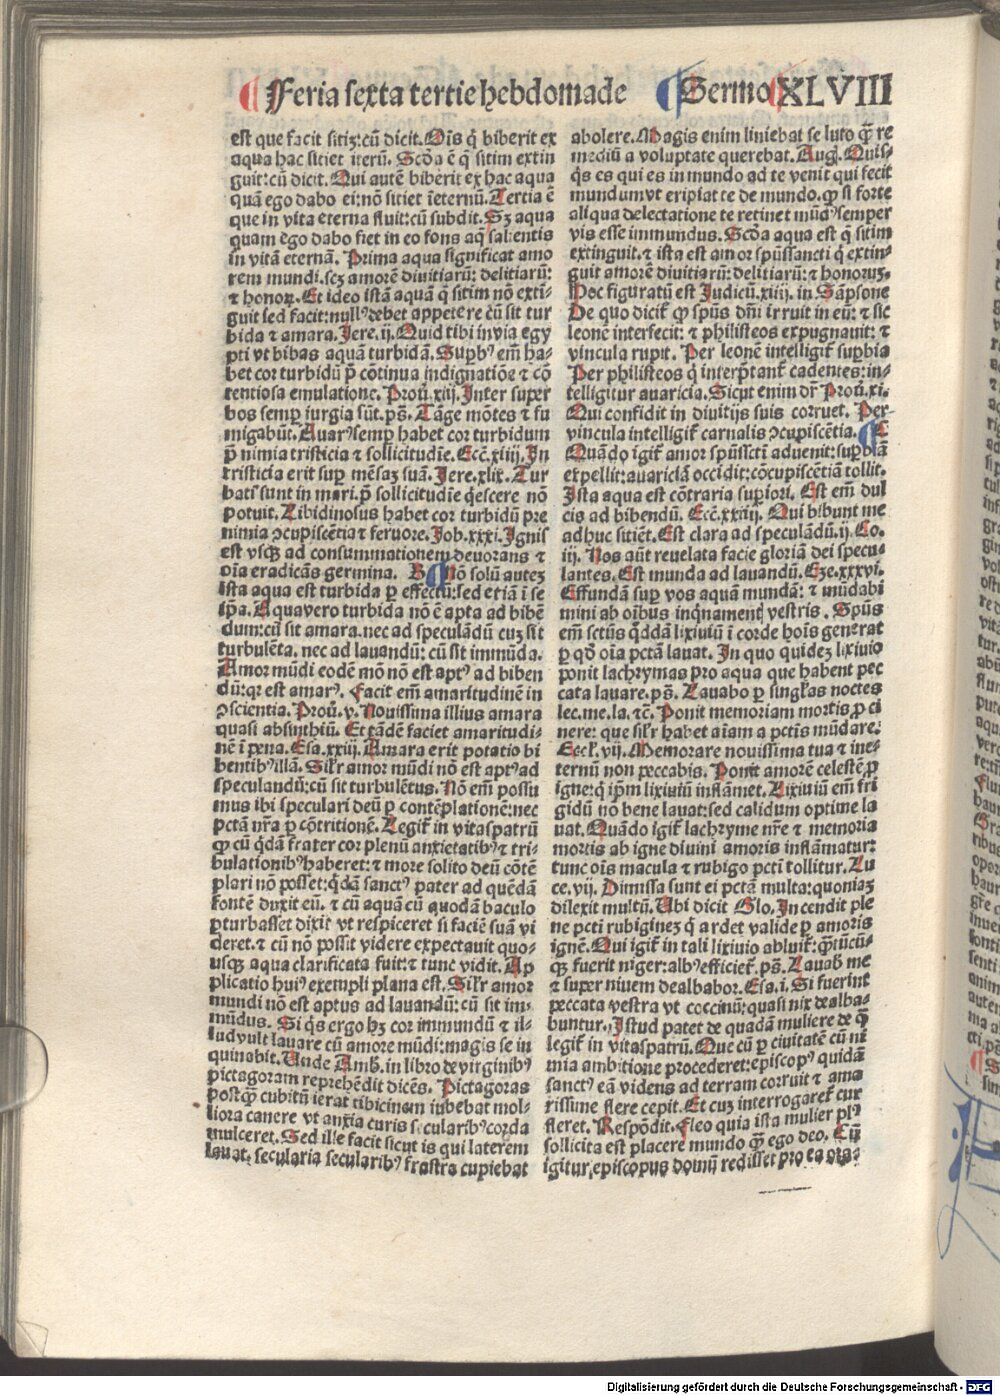 ¶ Feria sexta tertie hebdomade ¶ Sermo XLVIII
est que facit sitiꝫ: cū dicit. Oīs q̇ biberit ex
aqua hac sitiet iterū. Scd̄a ē q̄ sitim extin
guit: cū dicit. Qui autē biberit ex hac aqua
quā ego dabo ei: nō sitiet īeternū. Tertia ē
que in vita eterna fluit: cū subdit. Sꝫ aqua
quam ego dabo fiet in eo fons aq̄ salientis
in vitā eternā. Prima aqua significat amo
rem mundi. scꝫ amorē diuitiarū: delitiarū:
⁊ honoꝝ. Et ideo istā aquā q̄ sitim nō extī-
guit sed facit: nullꝰ debet appetere cū sit tur
bida ⁊ amara. Jere. ij. Quid tibi in via egy
pti vt bibas aquā turbidā. Suꝑbꝰ em̄ ha-
bet cor turbidū ꝓ cōtinua indignatiōe ⁊ cō
tentiosa emulatione. Prou̇. xiij. Inter super
bos semꝑ iurgia sūt. ps̄. Tāge mōtes ⁊ fu
migabūt. Auarꝰ semꝑ habet cor turbidum
ꝓ nimia tristicia ⁊ sollicitudīe. Ecc̄. xiiij. In
tristicia erit suꝑ mēsaꝫ suā. Jere. xlix. Tur
bati sunt in mari. ꝓ sollicitudīe q̇escere nō
potuit. Libidinosus habet cor turbidū pre
nimia ↄcupiscētia ⁊ feruore. Job. xxxi. Ignis
est vsqꝫ ad consummationem deuorans ⁊
oīa eradicās germina. B ¶ Nō solū auteꝫ
ista aqua est turbida ꝑ effectū: sed etiā ī se
ip̄a. Aqua vero turbida nō ē apta ad bibē
dum: cū sit amara. nec ad speculādū cuꝫ sit
turbulēta. nec ad lauandū: cū sit immūda.
Amor mūdi eodē mō nō est aptꝰ ad biben
dū: qꝛ est amarꝰ. Facit em̄ amaritudinē in
ↄscientia. Prou̇. v. Nouissima illius amara
quasi absinthiū. Et tādē faciet amaritudi-
nē ī pena. Esa. xxiij. Amara erit potatio bi
bentibꝰ illā. Silr̄ amor mūdi nō est aptꝰ ad
speculandū: cū sit turbulētus. Nō em̄ possu
mus ibi speculari deū ꝑ contēplationē: nec
pctā nr̄a ꝑ cōtritionē. Legit̄ in vitaspatrū
ꝙ cū q̇dā frater cor plenū anxietatibꝰ ⁊ tri-
bulationibꝰ haberet: ⁊ more solito deū cōtē
plari nō posset: q̇dā sanctꝰ pater ad quēdā
fontē duxit eū. ⁊ cū aquā cū quodā baculo
ꝑturbasset dixit vt respiceret si faciē suā vi
deret. ⁊ cū nō possit videre expectauit quo-
usqꝫ aqua clarificata fuit: ⁊ tunc vidit. Ap
plicatio huiꝰ exempli plana est. Silr̄ amor
mundi nō est aptus ad lauandū: cū sit im-
mūdus. Si q̇s ergo hꝫ cor immundū ⁊ il-
lud vult lauare cū amore mūdi: magis se in
quinabit. Unde Amb. in libro de virginibꝰ
pictagoram reprehēdit dicēs. Pictagoras
postq̄ cubitū ierat tibicinam iubebat mol-
liora canere vt anxia curis secularibꝰ corda
mulceret. Sed ille facit sicut is qui laterem
lauat. secularia secularibꝰ frustra cupiebat
abolere. Magis enim liniebat se luto q̄ re
mediū a voluptate querebat. Aug. Quis-
q̇s es qui es in mundo ad te venit qui fecit
mundum vt eripiat te de mundo. ꝙ si forte
aliqua delectatione te retinet mūdꝰ semper
vis esse immundus. Scd̄a aqua est q̄ sitim
extinguit. ⁊ ista est amor spūssancti q̇ extin-
guit amorē diuitiarū: delitiarū: ⁊ honoruꝫ.
Hoc figuratū est Judicū. xiiij. in Sāpsone
De quo dicit̄ ꝙ spūs dn̄i irruit in eū: ⁊ sic
leonē interfecit: ⁊ philisteos expugnauit: ⁊
vincula rupit. Per leonē intelligit̄ suꝑbia
Per philisteos q̇ interp̄tant̄ cadentes: in-
telligitur auaricia. Sicut enim dr̄ Prou̇. xi.
Qui confidit in diuitijs suis corruet. Per
vincula intelligit̄ carnalis ↄcupiscētia. ¶ C
Quādo igit̄ amor spūsscti aduenit: suꝑbiā
expellit: auariciā occidit: cōcupiscētiā tollit.
Ista aqua est cōtraria suꝑiori. Est em̄ dul
cis ad bibendū. Ecc̄. xxiiij. Qui bibunt me
adhuc sitiēt. Est clara ad speculādū. ij. Co.
iij. Nos aūt reuelata facie gloriā dei specu-
lantes. Est munda ad lauandū. Eze. xxxvi.
Effundā suꝑ vos aquam mundā: ⁊ mūdabi
mini ab oībus inq̇namentꝭ vestris. Spūs
em̄ sctūs q̇ddā lixiuiū ī corde hoīs generat
ꝑ qd̄ oīa pctā lauat. In quo quideꝫ lixiuio
ponit lachrymas pro aqua que habent pec
cata lauare. ps̄. Lauabo ꝑ singl̄as noctes
lec. me. la. ⁊c̄. Ponit memoriam mortis ꝓ ci
nere: que silr̄ habet aīam a pctīs mūdare.
Eccl̄. vij. Memorare nouissima tua ⁊ in e-
ternū non peccabis. Ponit amorē celestē ꝓ
igne: q̇ ip̄m lixiuiū inflāmet. Lixiuiū em̄ fri
gidū no bene lauat: sed calidum optime la
uat. Quādo igit̄ lachryme nr̄e ⁊ memoria
mortis ab igne diuini amoris inflāmatur:
tunc oīs macula ⁊ rubigo pctī tollitur. Lu
ce. vij. Dimissa sunt ei pctā multa: quoniaꝫ
dilexit multū. Ubi dicit Glo. Incendit ple
ne pcti rubigineꝫ q̇ ardet valide ꝑ amoris
ignē. Qui igit̄ in tali lixiuio abluit̄: q̄tūcū-
qꝫ fuerit niger: albꝰ efficiet̄. ps̄. Lauabꝭ me
⁊ super niuem dealbabor. Esa. i. Si fuerint
peccata vestra vt coccinū: quasi nix dealba-
buntur. Istud patet de quadā muliere de q̄
legit̄ in vitaspatrū. Que cū ꝑ ciuitatē cū ni
mia ambitione procederet: episcopꝰ quidā
sanctꝰ eā videns ad terram corruit ⁊ ama
rissime flere cepit. Et cuꝫ interrogaret̄ cur
fleret. Respōdit. Fleo quia ista mulier plꝰ
sollicita est placere mundo q̄ ego deo. Cū
igitur episcopus domū redisset pro ea ora-
Digitalisierung gefördert durch die Deutsche Forschungsgemeinschaft - DFG